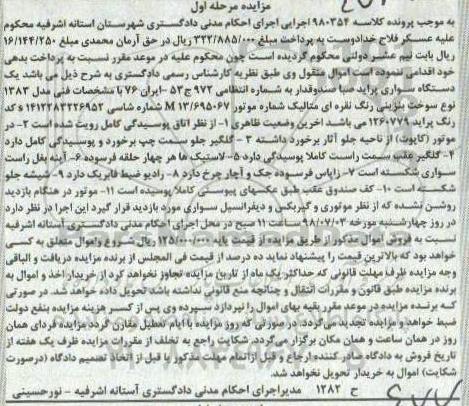 مزایده مرحله اول
به موجب پرونده کلاسه ۹۸۰۳۵۴ اجرایی اجرای احکام مدنی دادگستری شهرستان آستانه اشرفیه محکوم
علیه عسکر فلاح خدادوست به پرداخت مبلغ ۳۲۲/۸۸۵/۰۰۰ ریال در حق آرمان محمدی مبلغ ۱۶/۱۴۴/۲۵۰
ریال بابت نیم عشر دولتی محکوم گردیده است چون محکوم علیه در موعد مقرر نسبت به پرداخت بدهی
خود اقدامی ننموده است اموال منقول وی طبق نظریه کارشناس رسمی دادگستری به شرح ذیل می باشد یک
دستگاه سواری پراید صبا صندوقدار به شماره انتظامی ۹۷۲ ج ۵۳ - ایران ۷۶ با مشخصات فنی مدل ۱۳۸۳
نوع سوخت بنزینی رنگ نقره ای متالیک شماره موتور M ۱۳/۶۹۵۰۶۷ شماره شاسی ۱۴۱۲۲۸۳۲۲۶۹۵۲ S کد
رنگ پراید ۱۲۶۰۷۷۹ می باشد آخرین وضعیت ظاهری ۱- از نظر اتاق پوسیدگی کامل رویت شده است ۲- در
موتور (کاپوت) از ناحیه جلو آثار برخورد داشته ۳ - گلگیر جلو سمت چپ برخورد و پوسیدگی کامل دارد
۴- گلگیر عقب سمت راست کاملا پوسیدگی دارد ۵- لاستیک ها هر چهار حلقه فرسوده ۶- آینه بغل راست
سواری شکسته است ۷- زاپاس فرسوده جک و آچار چرخ دارد ۸- رادیو ضبط فابریک دارد ۹- شیشه جلو
شکسته است ۱۰- کف صندوق عقب طبق عکسهای پیوستی کاملا پوسیده است ۱۱- موتور در هنگام بازدید
روشن نشده که از نظر موتوری و گیربکس و دیفرانسیل سواری مورد بازدید قرار گیرد این اجرا در نظر دارد
در روز چهارشنبه مورخه ۹۸/۰۷/۰۳ ساعت ۱۱ صبح در محل اجرای احکام مدنی دادگستری آستانه اشرفیه
نسبت به فروش اموال مذکور از طریق مزایده از قیمت پایه ۱۲۵/۰۰۰/۰۰۰ ریال شروع واموال متعلق به کسی
خواهد بود که بالاترین قیمت را پیشنهاد نماید ده درصد از قیمت فی المجلس از برنده مزایده دریافت و الباقی
وجه مزایده ظرف مهلت قانونی که حداکثر یک ماه از تاریخ مزایده تجاوز نخواهد کرد از خریدار اخذ و اموال به
برنده مزایده طبق قانون و مقررات انتقال و چنانچه منع قانونی نداشته باشد تحویل داده خواهد شد. در صورتی
که برنده مزایده در موعد مقرر بقیه بهای اموال را نپردازد سپرده وی پس از کسر هزینه مزایده بنفع دولت
ضبط خواهد و مزایده تجدید می‌گردد. در صورتی که روز مزایده با ایام تعطیل مقارن گردد مزایده فردای همان
روز در همان ساعت و همان مکان برگزار می‌گردد. شکایت راجع به تخلف از مقررات مزایده ظرف یک هفته از
تاریخ فروش به دادگاه صادر کننده ارجاع و قبل از اتمام مهلت مذکور یا قبل از اتخاذ تصمیم دادگاه (درصورت
شکایت) اموال به خریدار تحویل نخواهد شد.
ح ۱۲۸۲ مدیر اجرای احکام مدنی دادگستری آستانه اشرفیه - نورحسینی